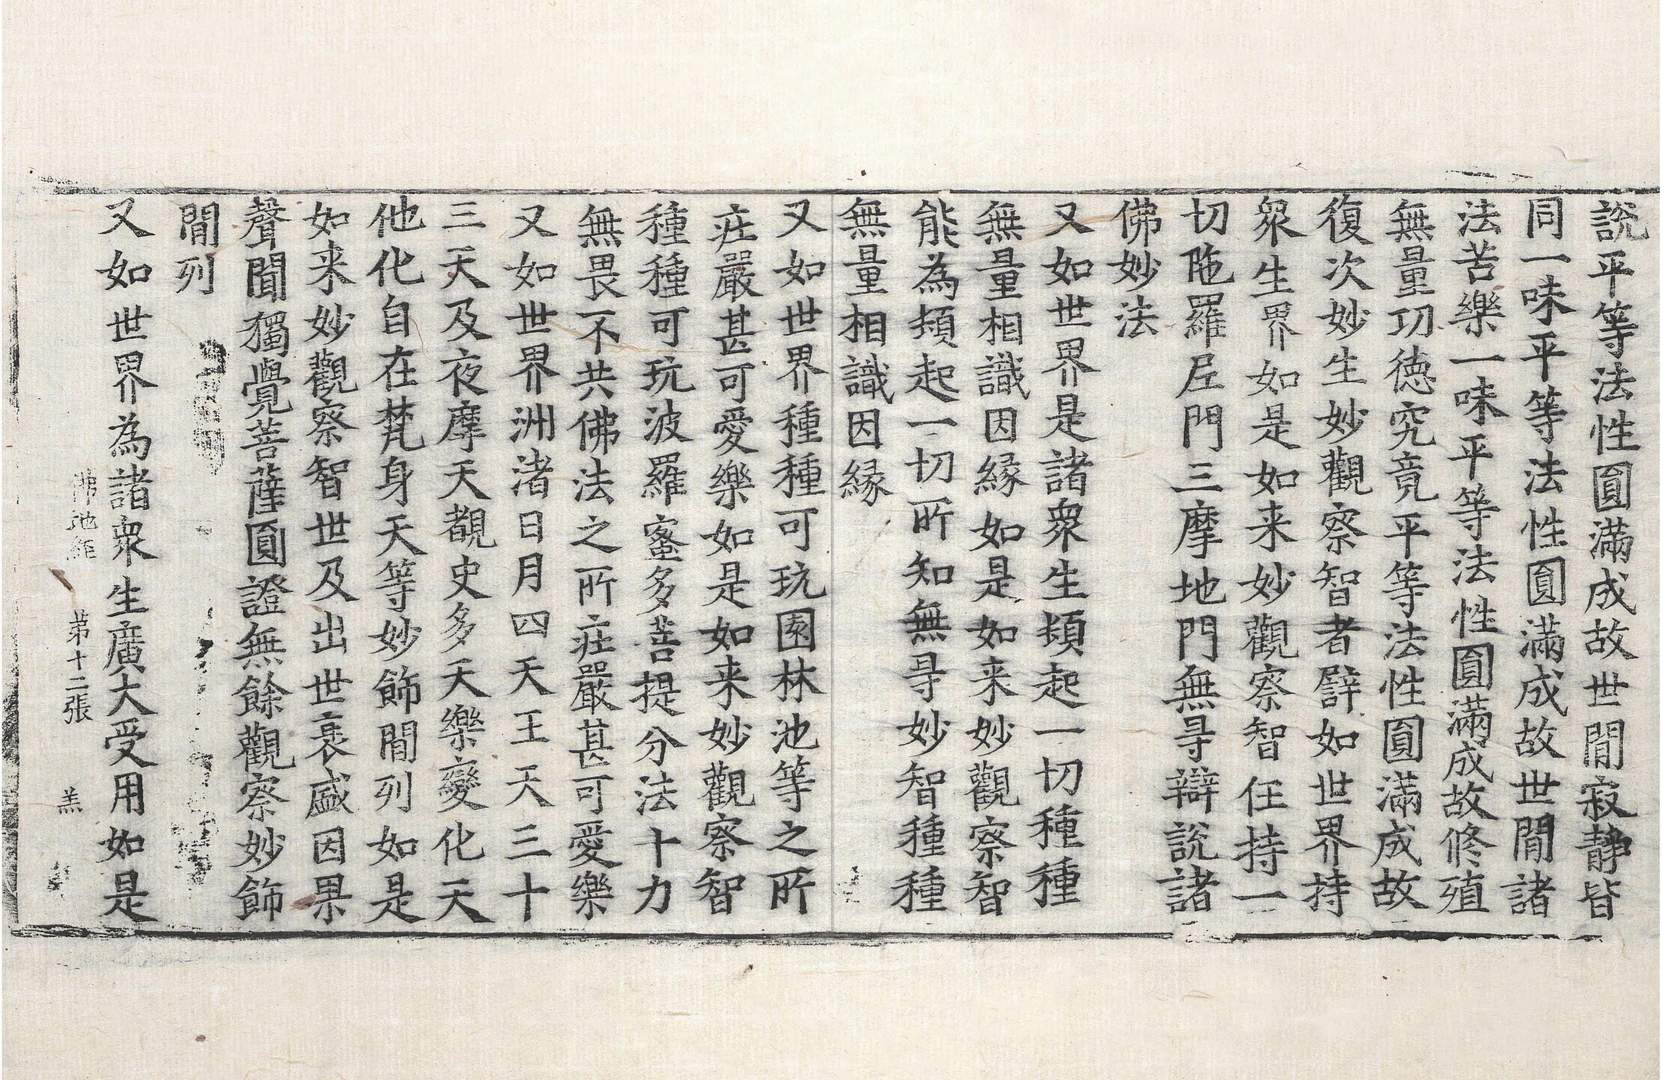 説平等法性圓滿成故世間寂静皆
同一味平等法性圓滿成故世間諸
法苦樂一味平等法性圓滿成故修殖
無量功徳究竟平等法性圓滿成故
復次妙生妙觀察智者譬如世界持
衆生界如是如来妙觀察智任持一
切陁羅尼門三摩地門無㝵辯說諸
佛妙法
又如世界是諸衆生頓起一切種種
無量相識因縁如是如来妙觀察智
能為頓起一切所知無㝵妙智種種
無量相識因縁
又如世界種種可玩園林池等之所
莊嚴甚可愛樂如是如来妙觀察智
種種可玩波羅蜜多菩提分法十力
無畏不共佛法之所莊嚴甚可愛樂
又如世界洲渚日月四天王天三十
三天及夜摩天覩史多天樂變化天
他化自在梵身天等妙飾間列如是
如来妙觀察智世及出世衰盛因果
聲聞獨覺菩薩圓證無餘觀察妙飾
間列
又如世界為諸衆生廣大受用如是
佛地經 第十二張 羔